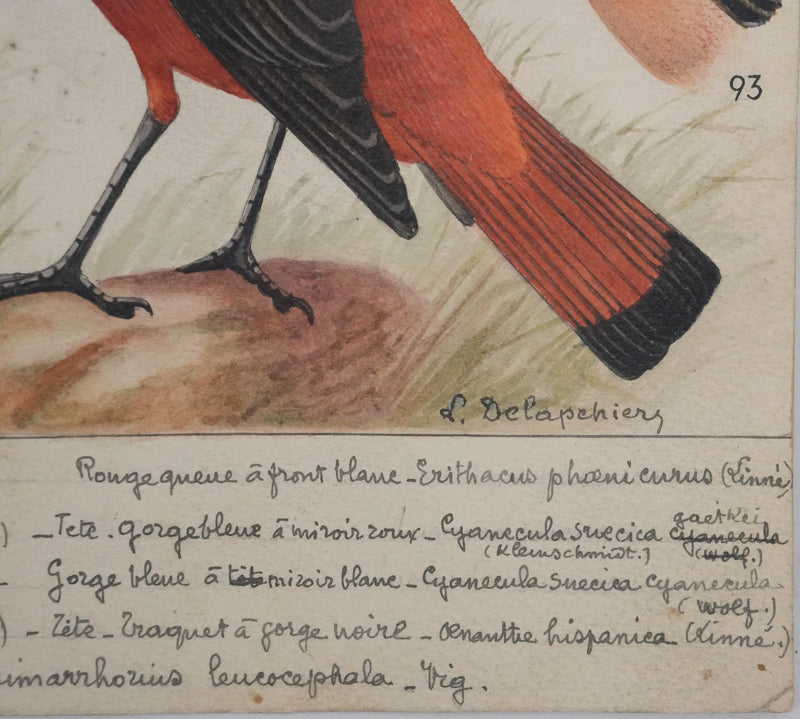 93
L. Delapchier
Rougequeue à front blanc - Erithacus phœnicurus (Linné)
) - Tete. gorgebleue à miroir roux - Cyanecula suecica cyanecula
gaetkei
(Kleinschmidt.) (Wolf.)
- Gorge bleue à tête miroir blanc - Cyanecula suecica cyanecula.
(Wolf.)
) - Tête - Traquet à gorge noire - Oenanthe hispanica (Linné.)
imarrhorius leucocephala - Vig.